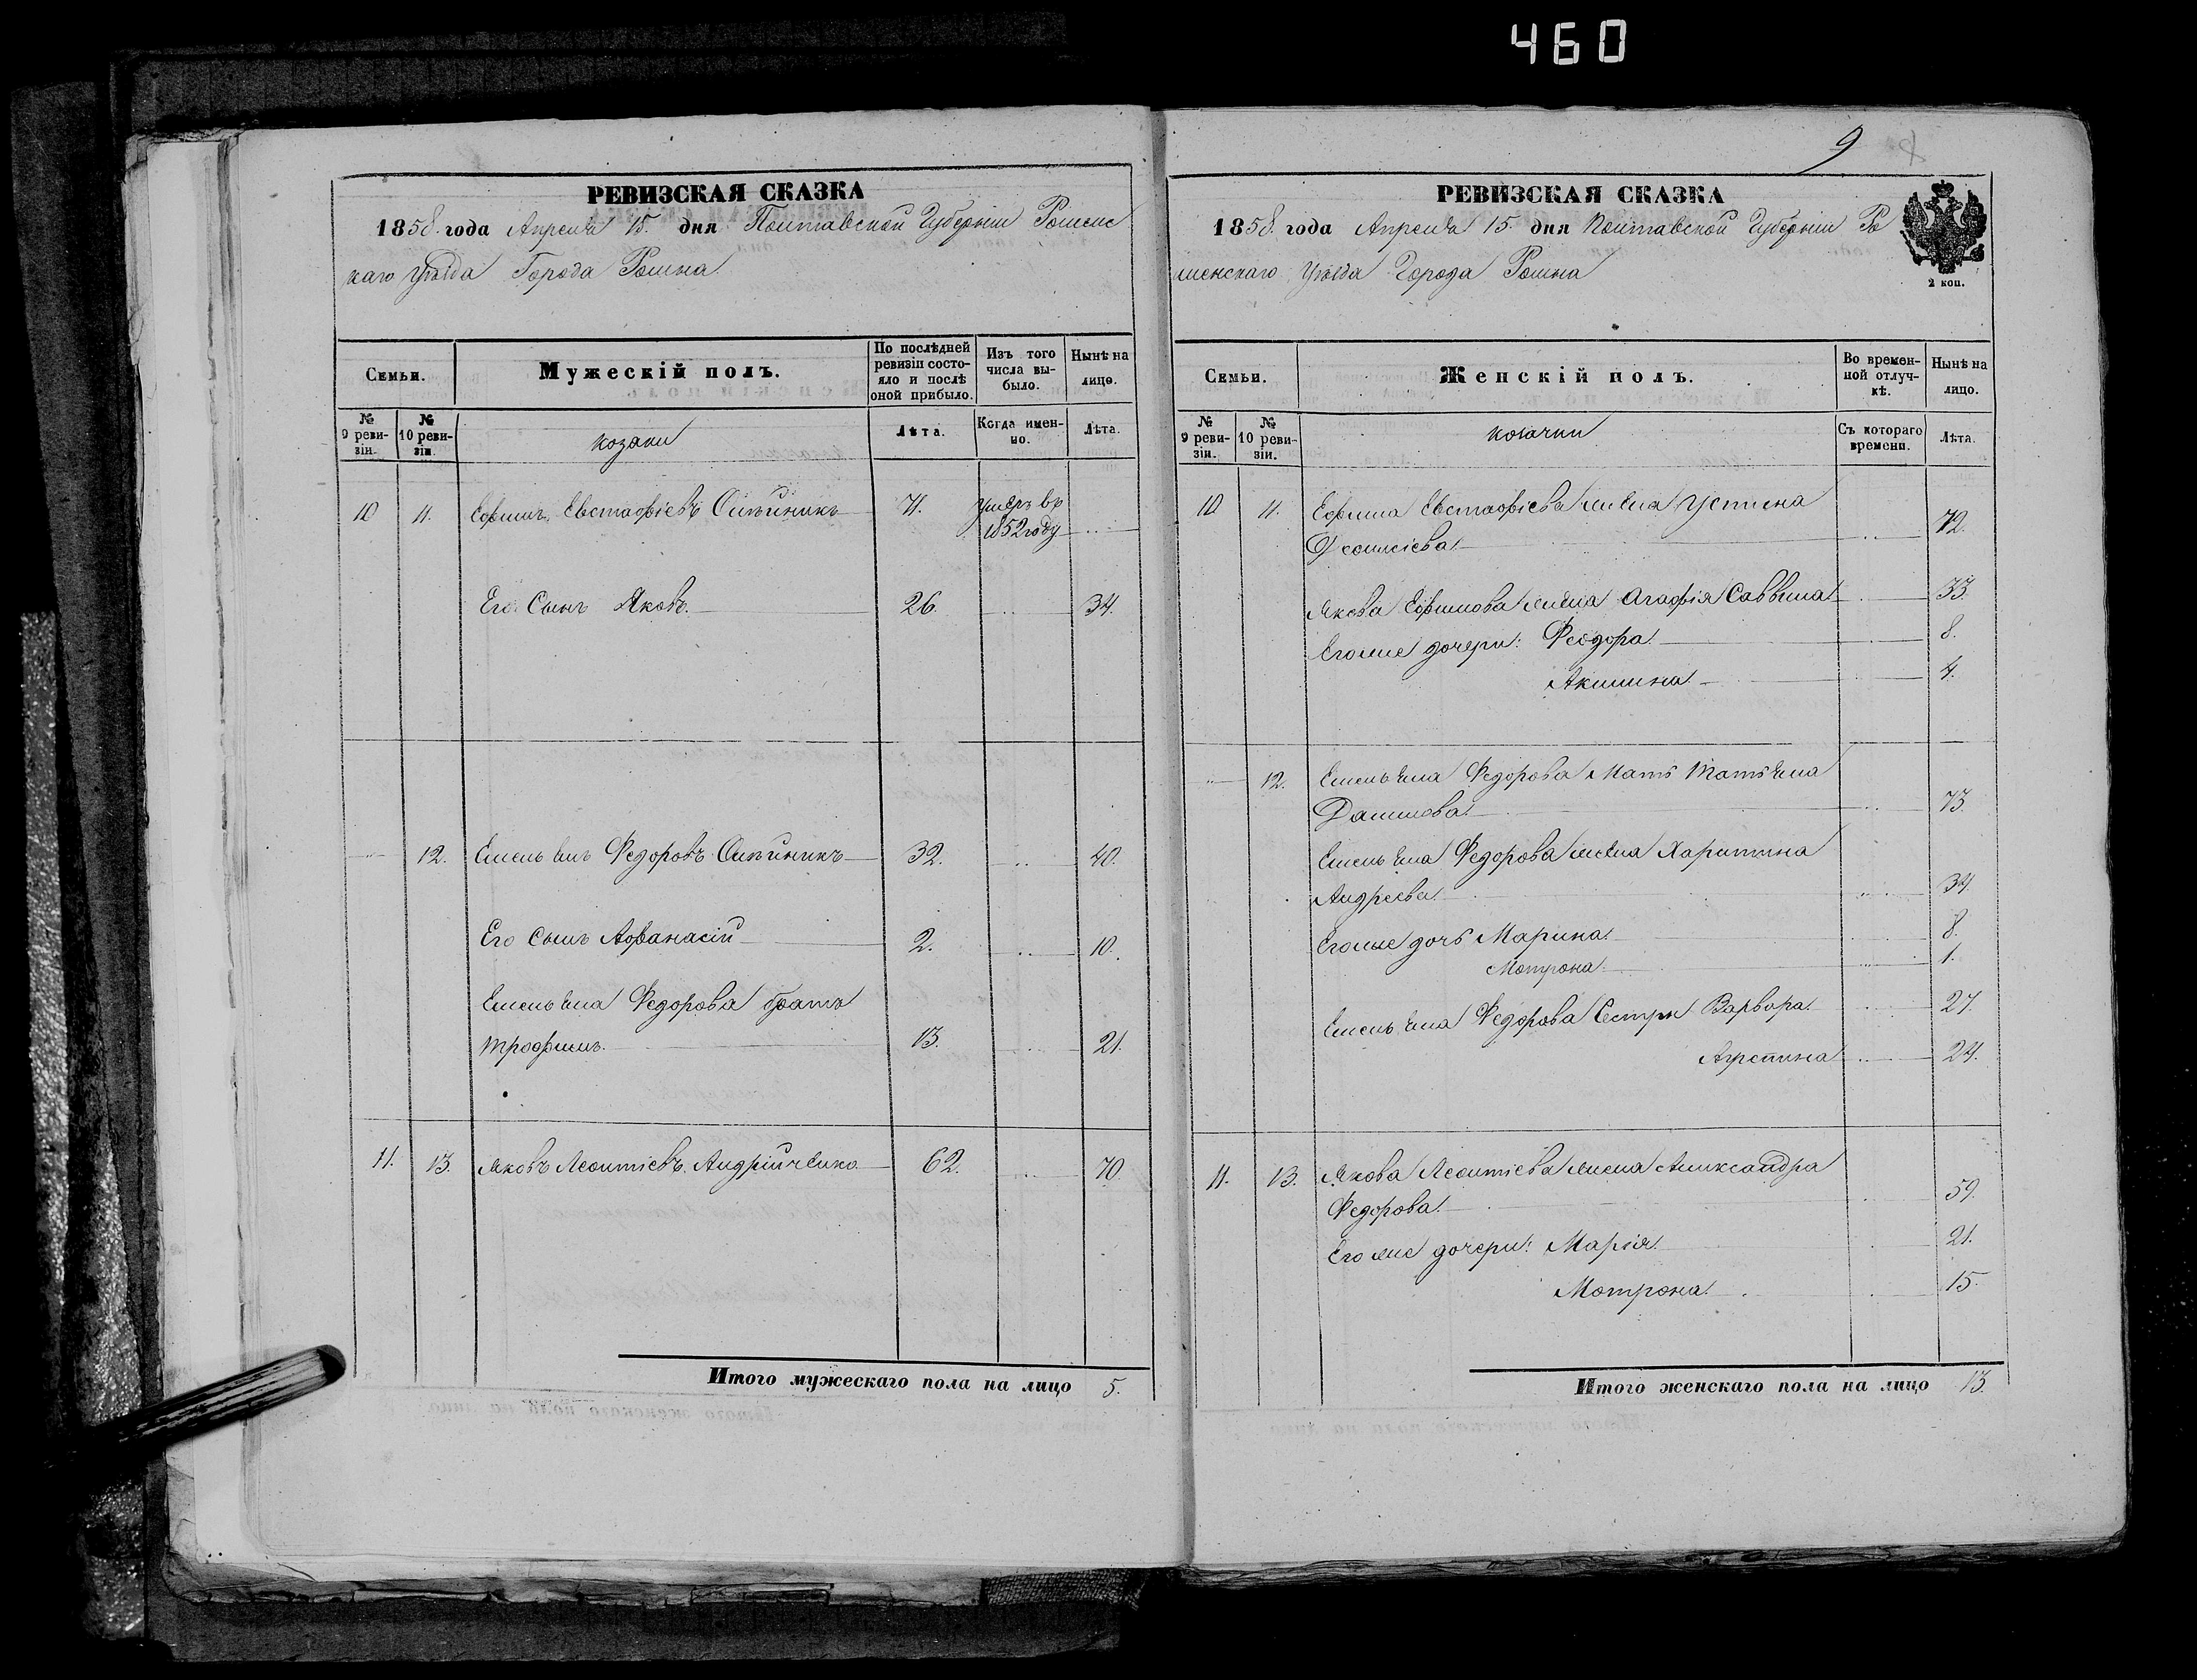 460
9
РЕВИЗСКАЯ СКАЗКА
1858. года Апреля 15. дня Полтавской Губернии Роменс
каго Уѣзда Города Ромна
Семьи.
Мужескій полъ.
По послѣдней ревизіи состояло и послѣ оной прибыло.
Изъ того числа выбыло.
Нынѣ на лицо.
№ 9 ревизіи.
№ 10 ревизіи.
козаки
Лѣта.
Когда именно.
Лѣта.
10 11. Ефимъ Евстафіевъ Олѣйникъ 71. умеръ въ
1852 году
Его Сынъ Яковъ. 26. 34
12. Емельянъ Федоровъ Олѣйникъ 32. 40.
Его сынъ Афанасій 2. 10.
Емельяна Федорова братъ
Трофимъ. 13. 21.
11. 13. Яковъ Леонтіевъ Андрійченко 62. 70
Итого мужескаго пола на лицо 5.
РЕВИЗСКАЯ СКАЗКА
1858. года Апреля 15. дня Полтавской Губерніи Ро
менскаго Уѣзда Города Ромна
2 коп.
Семьи.
Женскій полъ.
Во временной отлучкѣ.
Нынѣ на лицо.
№ 9 ревизіи.
№ 10 ревизіи.
козачки
Съ котораго времени.
Лѣта.
10 11. Ефима Евстафіева жена Устина
72.
Якова Ефимова жена Агафія Саввина 33.
Егоже дочери: Феодора 8.
Акилина 4.
12. Емельяна Федорова Мать Татьяна
Данилова 73.
Емельяна Федорова жена Харитина
Андреева 34
Егоже дочь Марина 8.
Мотрона 1.
Емельяна Федорова Сестры Варвора 27.
Агрепина 24.
11. 13. Якова Леонтіева жена Александра
Федорова 59.
Егоже дочери: Марія 21.
Мотрона 15.
Итого женскаго пола на лицо 13.